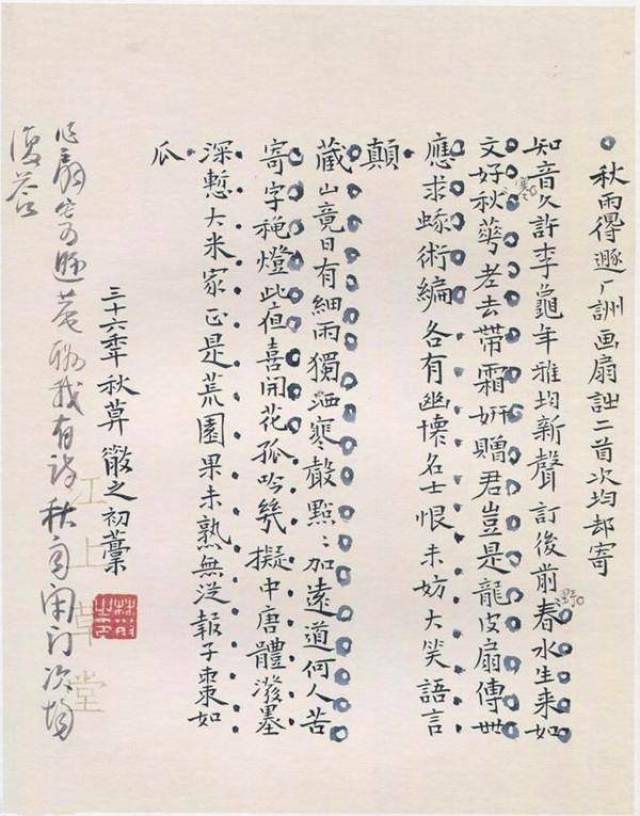 秋雨得遯厂詶画扇詩二首次均却寄
知音久許李龜年雅均新聲訂後前春水生来如
文好秋華老去带霜妍贈君豈是龍皮扇傳世
應求蜍術編各有幽懷名士恨未妨大笑語言
顛
藏山竟日有細雨獨洒寒聲點〻加遠道何人苦
寄字穐燈此宿喜開花孤吟幾擬中唐體潑墨
深慙大米家正是荒園果未熟無從報子棗如
瓜
三十六年秋莫徵之初藁
江上草堂